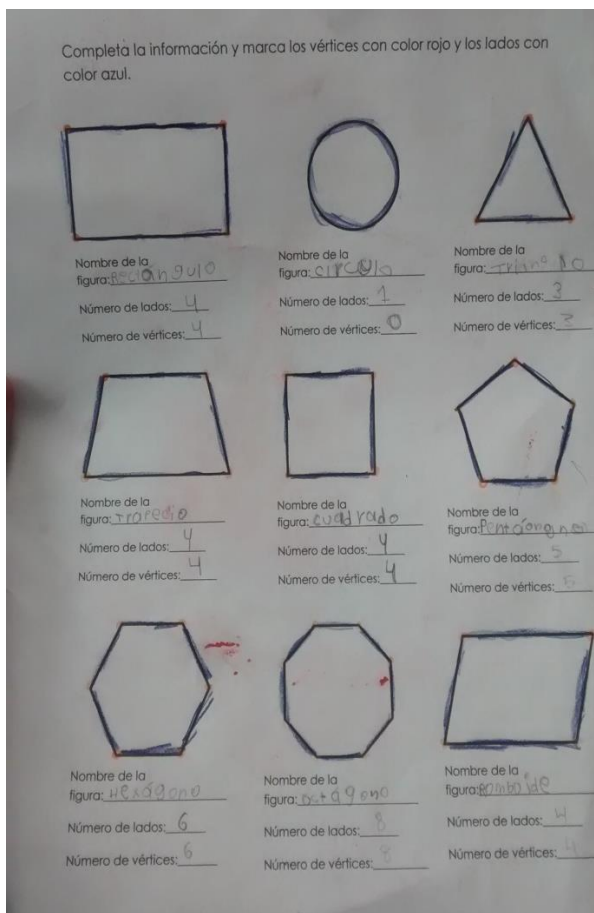 Completa la información y marca los vértices con color rojo y los lados con
color azul.
Nombre de la
figura: Rectángulo
Número de lados: 4
Número de vértices: 4
Nombre de la
figura: circulo
Número de lados: 1
Número de vértices: 0
Nombre de la
figura:
Número de lados: 3
Número de vértices: 3
Nombre de la
figura: Trapecio
Número de lados: 4
Número de vértices: 4
Nombre de la
figura: cuadrado
Número de lados: 4
Número de vértices: 4
Nombre de la
figura:
Número de lados: 5
Número de vértices: 5
Nombre de la
figura: Hexágono
Número de lados: 6
Número de vértices: 6
Nombre de la
figura: octágono
Número de lados: 8
Número de vértices: 8
Nombre de la
figura: Romboide
Número de lados: 4
Número de vértices: 4